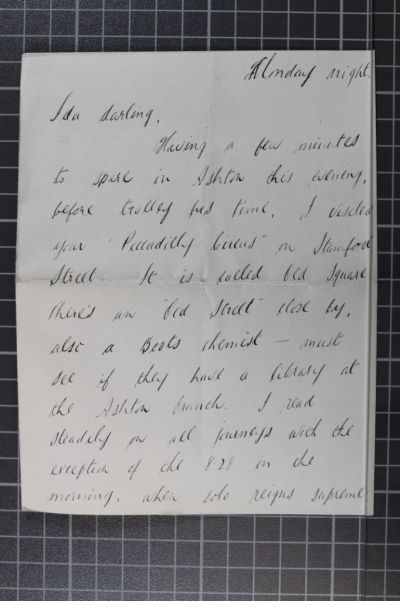 Monday night.
Ida darling,
Having a few minutes
to spare in Ashton this evening,
before trolley bus time, I visited
your "Piccadilly Circus" on Stamford
Street. It is called Old Square
there's an "Old Street" close by,
also a Boots chemist – must
see if they have a library at
the Ashton branch. I read
steadily on all journeys with the
exception of the 8.28 in the
morning, when solo reigns supreme.